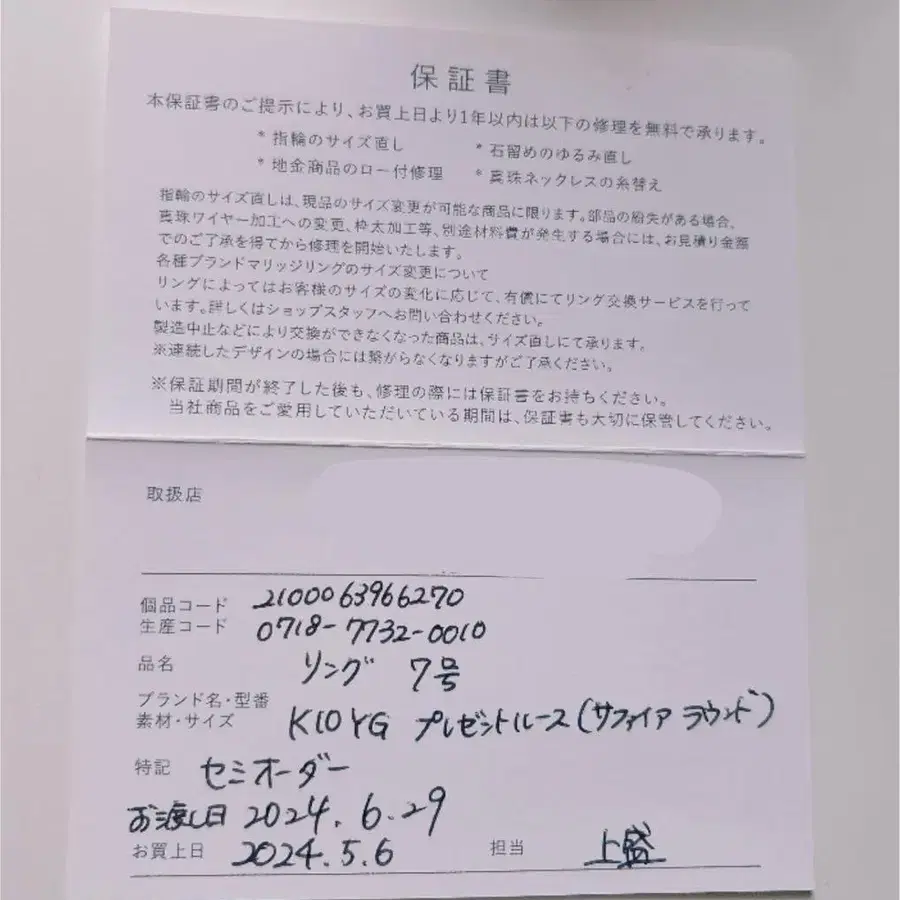 保証書
本保証書のご提示により、お買上日より1年以内は以下の修理を無料で承ります。
* 指輪のサイズ直し * 石留めのゆるみ直し
* 地金商品のロー付修理 * 真珠ネックレスの糸替え
指輪のサイズ直しは、現品のサイズ変更が可能な商品に限ります。部品の紛失がある場合、
真珠ワイヤー加工への変更、枠太加工等、別途材料費が発生する場合には、お見積り金額
でのご了承を得てから修理を開始いたします。
各種ブランドマリッジリングのサイズ変更について
リングによってはお客様のサイズの変化に応じて、有償にてリング交換サービスを行って
います。詳しくはショップスタッフへお問い合わせください。
製造中止などにより交換ができなくなった商品は、サイズ直しにて承ります。
※連続したデザインの場合には繋がらなくなりますがご了承ください。
※保証期間が終了した後も、修理の際には保証書をお持ちください。
当社商品をご愛用していただいている期間は、保証書も大切に保管してください。
取扱店
個品コード 2100063966270
生産コード 0718-7732-0010
品名 リング 7号
ブランド名・型番
素材・サイズ K10YG プレゼントルース(サファイア ラウンド)
特記 セミオーダー
お渡し日 2024.6.29
お買上日 2024.5.6 担当 上盛